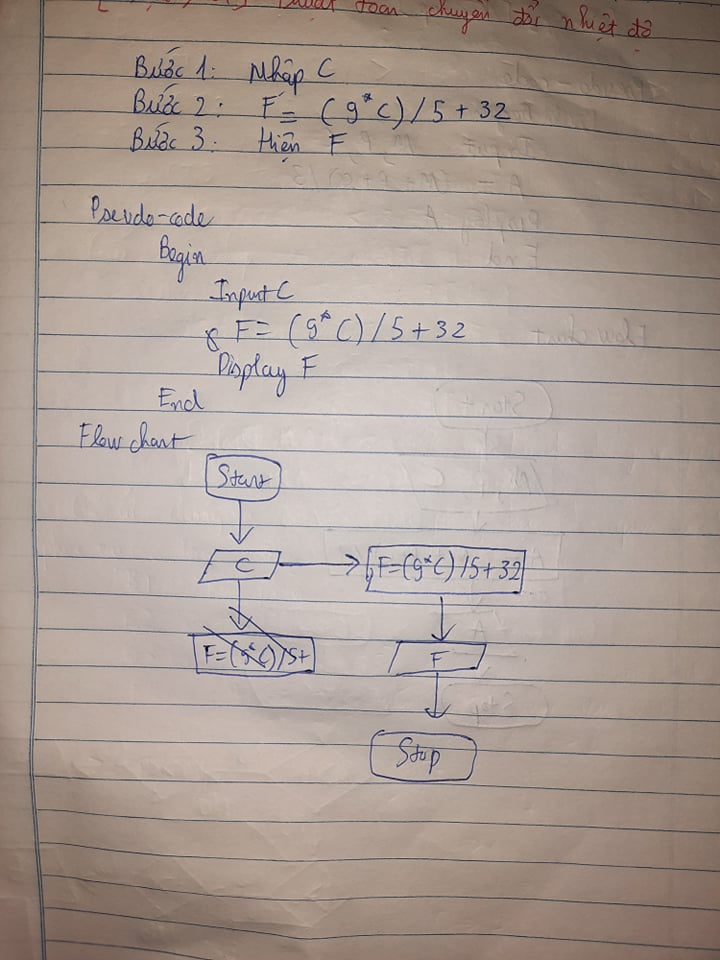 thuật toán chuyển đổi nhiệt độ
Bước 1: Nhập C
Bước 2: F = (9*C)/5+32
Bước 3: Hiện F
Pseudo-code
Begin
Input C
F = (9*C)/5+32
Display F
End
Flow chart
Start
C
F=(9*C)/5+32
F=(9*C)/5+
F
Stop